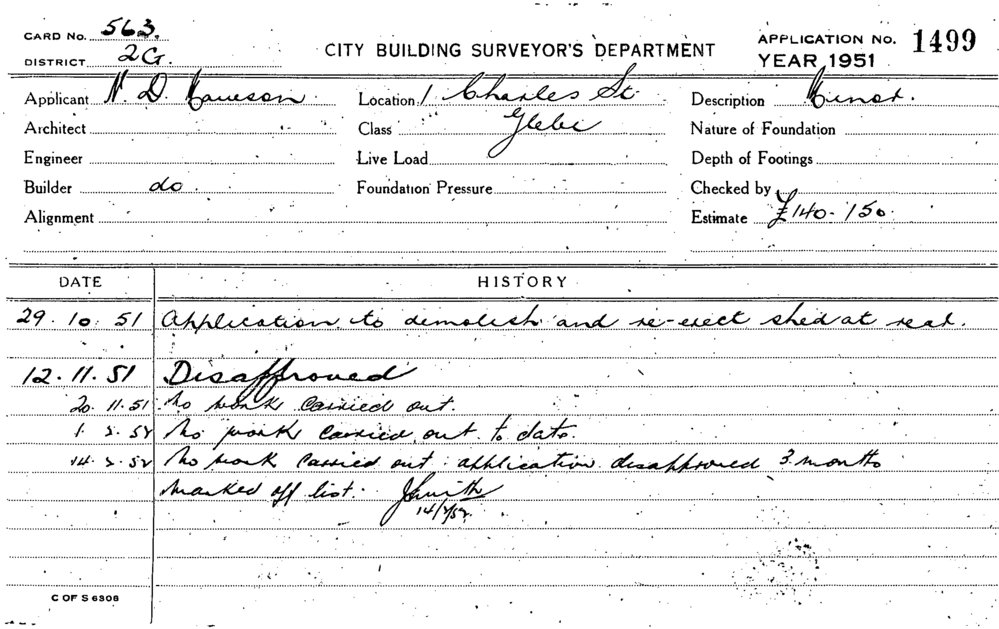 CARD No. 563.
DISTRICT 2G.
CITY BUILDING SURVEYOR'S DEPARTMENT
APPLICATION No. 1499
YEAR 1951
Applicant N. D.
Location 1 Charles St.
Description Minor.
Architect
Class Glebe
Nature of Foundation
Engineer
Live Load
Depth of Footings
Builder do.
Foundation Pressure
Checked by
Alignment
Estimate £140-150.
DATE HISTORY
29.10.51 Application to demolish and re-erect shed at rear.
12.11.51 Disapproved
20.11.51 No work carried out.
1.2.52 No work carried out to date.
14.2.52 No work carried out application disapproved 3 months
marked off list. JSmith
14/2/52.
C OF S 6308